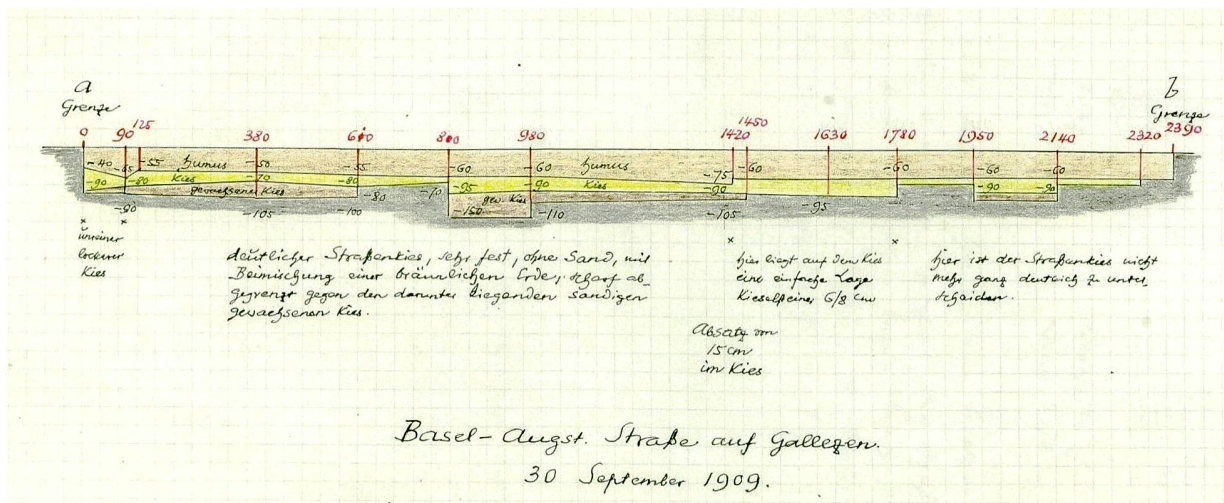 a
Grenze
b
Grenze
0 90 125 380 600 800 980 1420 1450 1630 1780 1950 2140 2320 2390
-40 -65 -55 Humus -50 -55 -60 -60 Humus -75 -60 -60 -60 -60
-90 -80 Kies -70 -80 -80 -70 -95 -90 Kies -90 -90 -90
gewachsener Kies gew. Kies
-90 -105 -100 -150 -110 -105 -95
×
unreiner
lockerer
Kies
×
deutlicher Straßenkies, sehr fest, ohne Sand, mit
Beimischung einer bräunlichen Erde, scharf ab-
gegrenzt gegen den darunter liegenden sandigen
gewachsenen Kies.
×
hier liegt auf dem Kies
eine einfache Lage
Kieselsteine 6/8 cm
×
hier ist der Straßenkies nicht
mehr ganz deutlich zu unter-
scheiden.
Absatz von
15 cm
im Kies
Basel-Augst. Straße auf Gallezen.
30 September 1909.